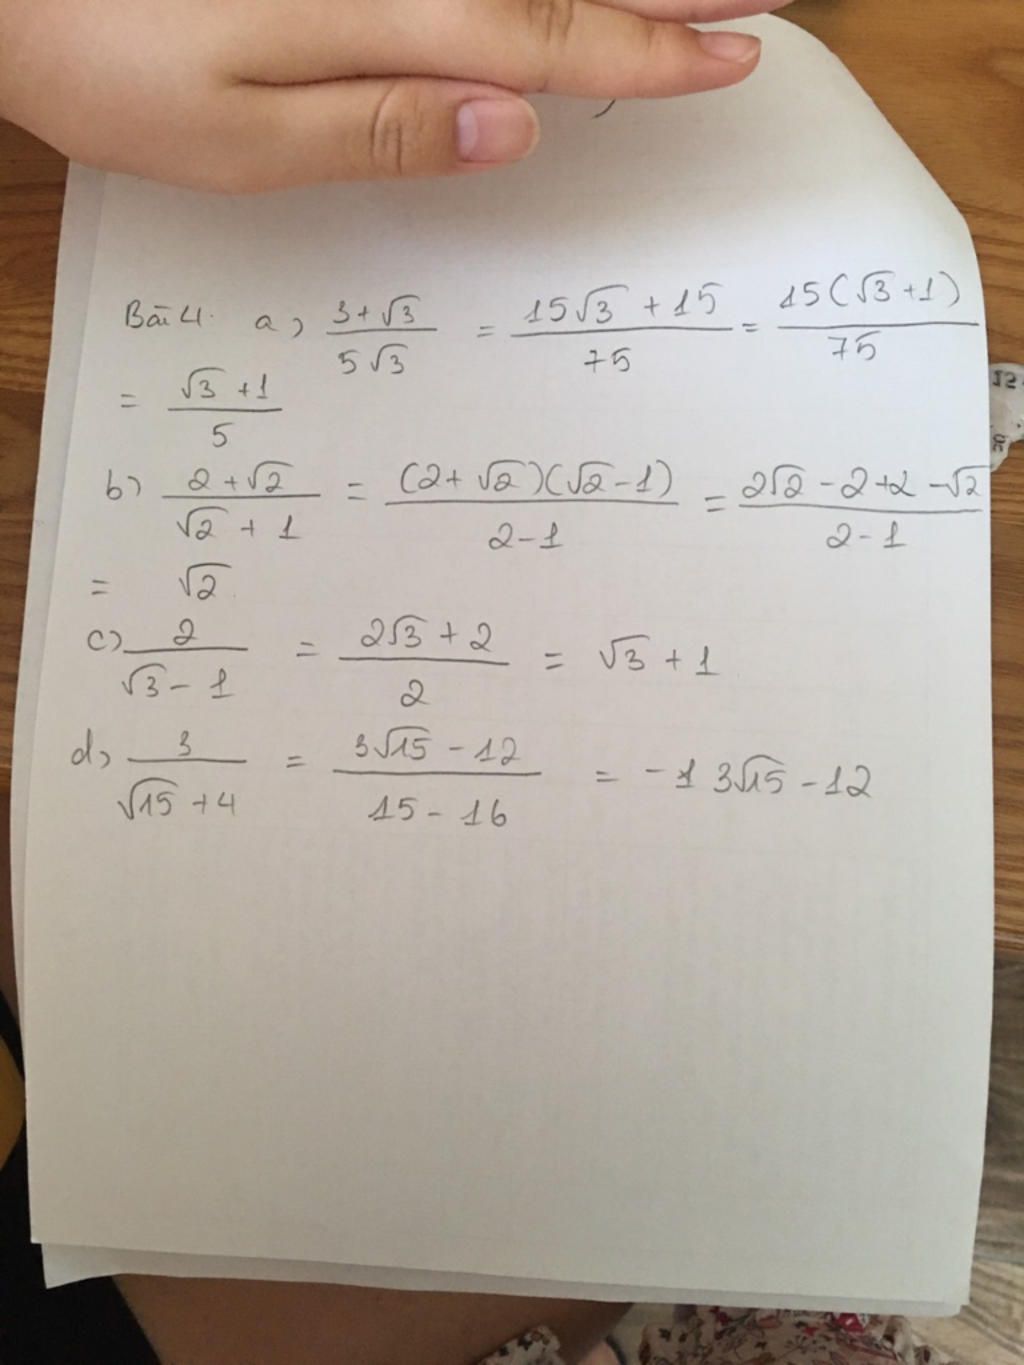 Bài 4. a) (3+√3)/(5√3) = (15√3 + 15)/75 = (15(√3+1))/75
= (√3 + 1)/5
b) (2+√2)/(√2 + 1) = ((2+√2)(√2-1))/(2-1) = (2√2 - 2 + 2 - √2)/(2-1)
= √2
c) 2/(√3 - 1) = (2√3 + 2)/2 = √3 + 1
d) 3/(√15 + 4) = (3√15 - 12)/(15 - 16) = -1 3√15 - 12